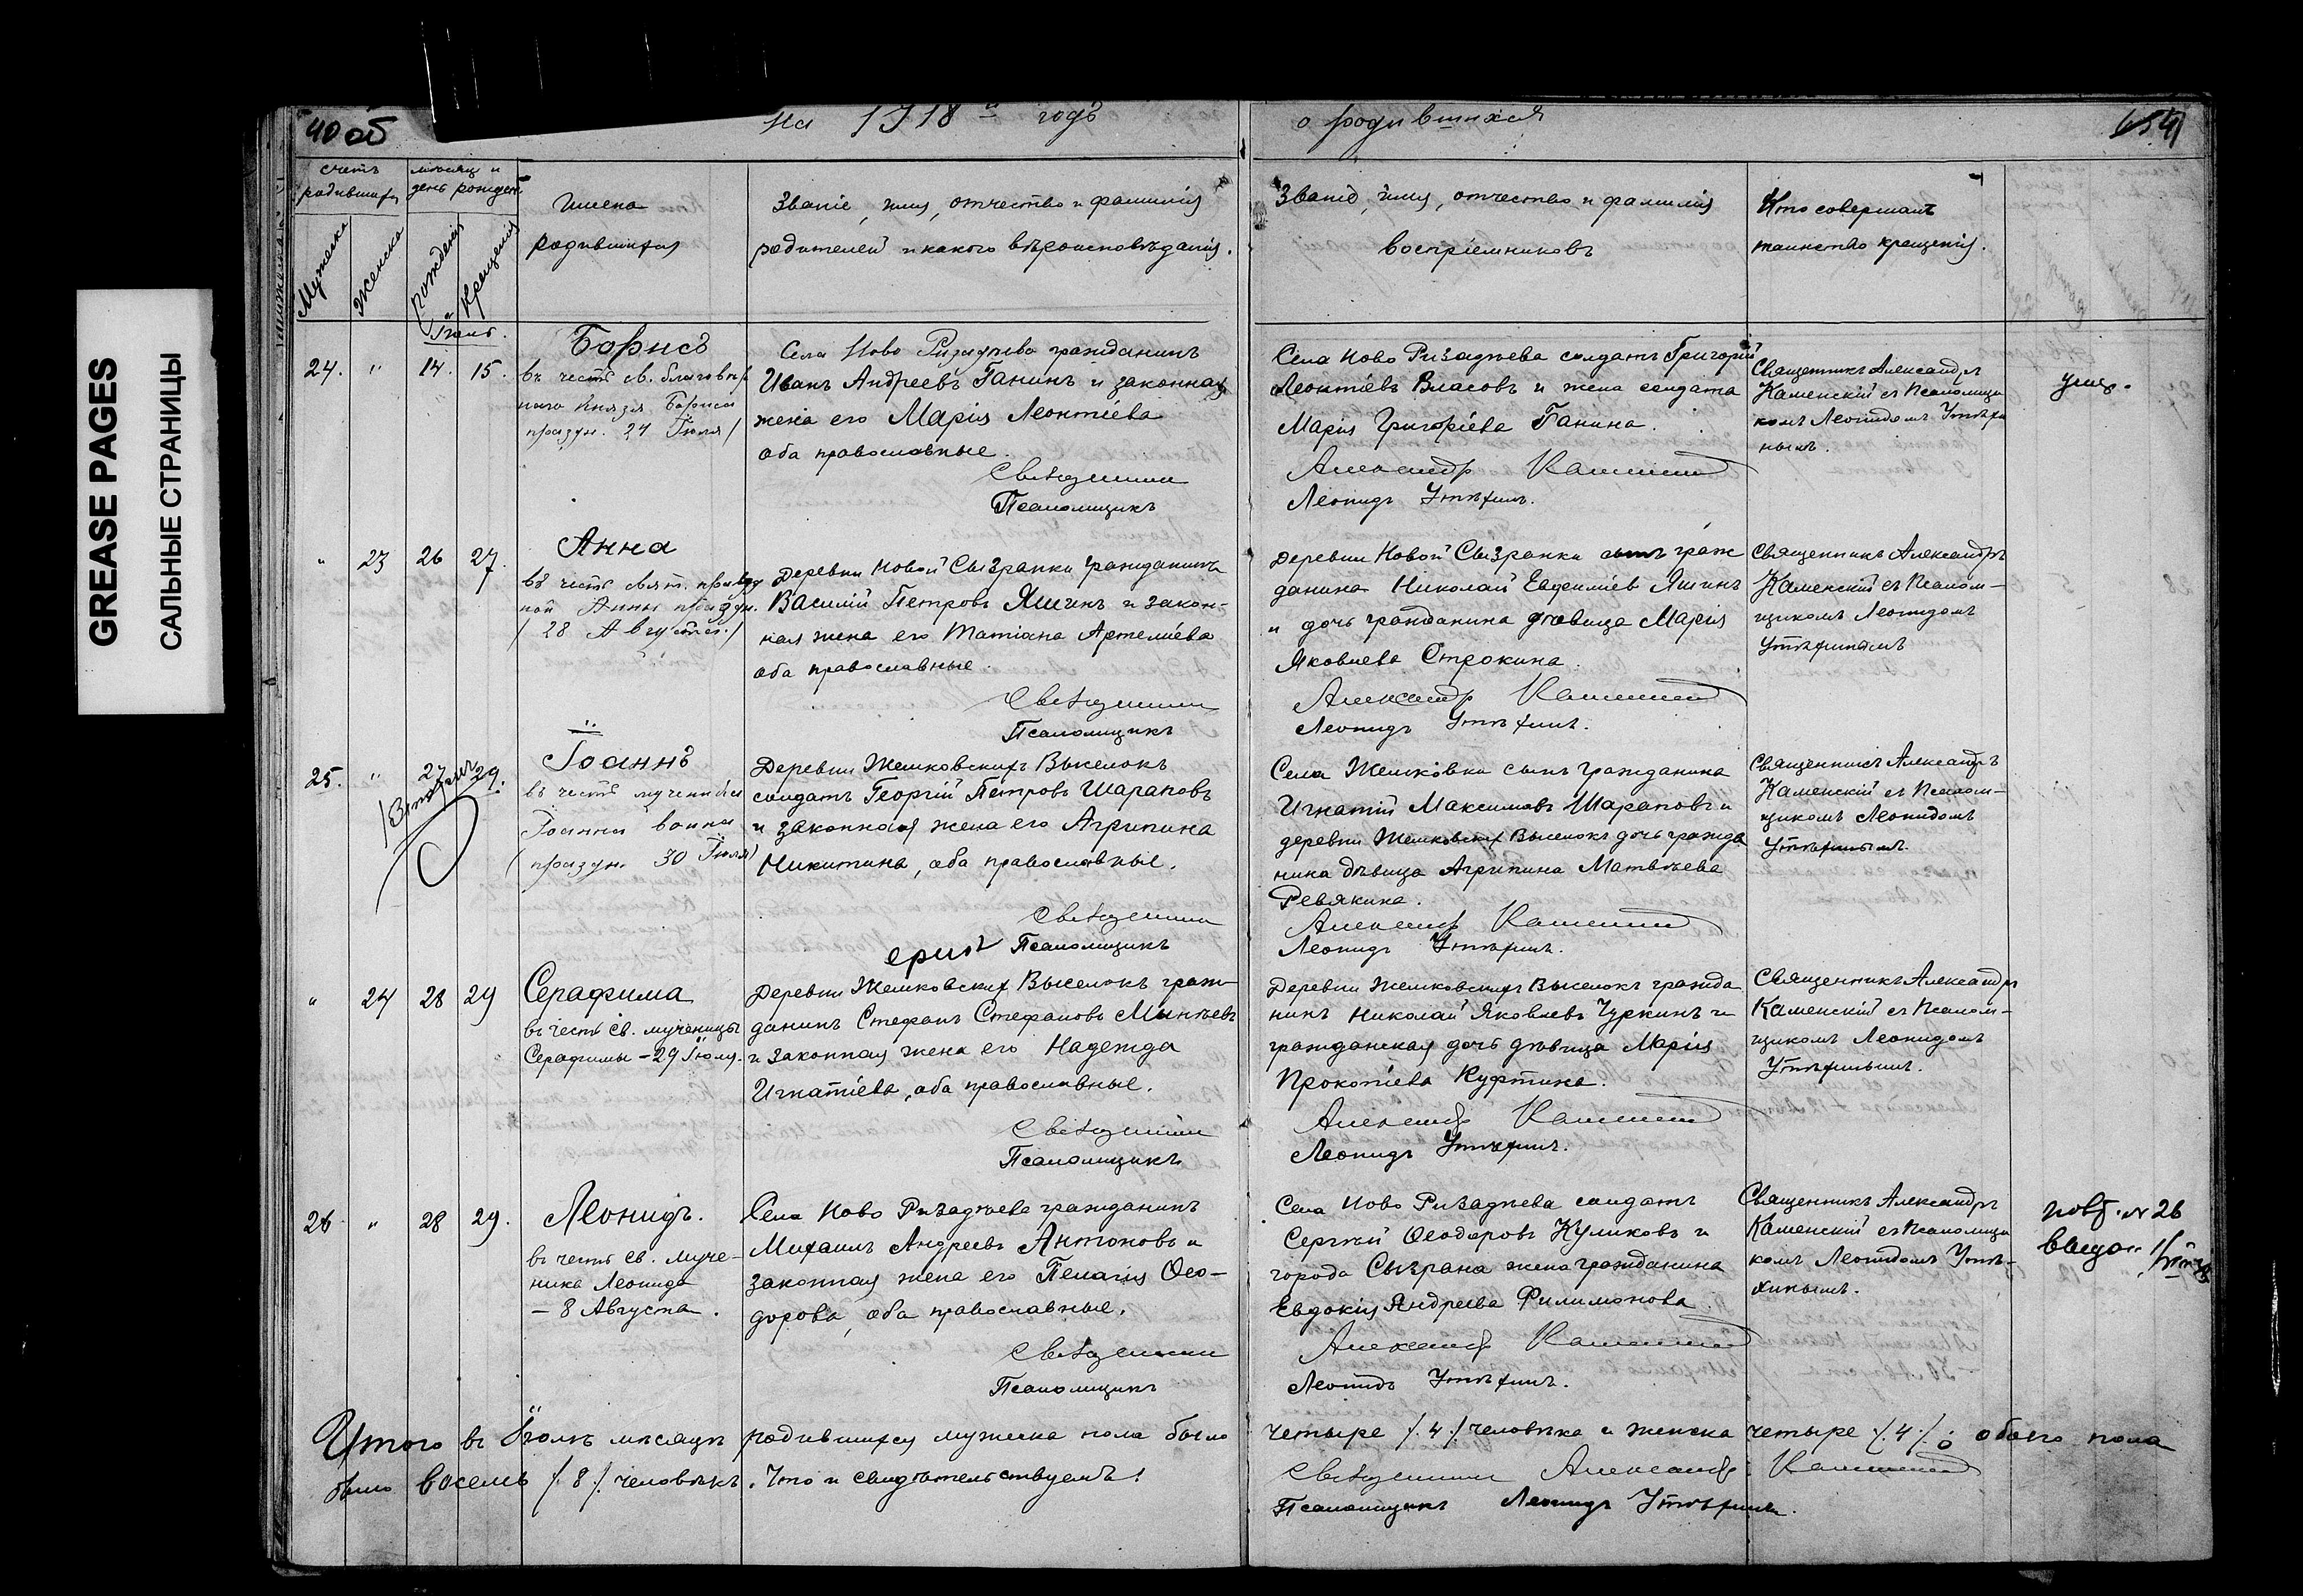 GREASE PAGES
САЛЬНЫЕ СТРАНИЦЫ
40 об
на 1918 й годъ
о родившихся
счетъ родившихся
Мужеска
Женска
мѣсяцъ и день рожден.
Рожденія
Крещенія
Имена
родившихся
Званіе, имя, отчество и фамилія
родителей и какого вѣроисповѣданія.
Званіе, имя, отчество и фамилія
воспріемниковъ
Кто совершалъ
таинство крещенія.
24. " 14. 15.
Борисъ
въ честь св. благовѣр
наго Князя Бориса
праздн. 24 Іюля/
Села Ново Ризадѣева гражданинъ
Иванъ Андреевъ Ганинъ и законная
жена его Марія Леонтіева
оба православные.
Священникъ
Псаломщикъ
Села Ново Ризадѣева солдатъ Григорій
Леонтіевъ Власовъ и жена солдата
Марія Григоріева Ганина.
Александр Каменскій
Леонидъ Утѣхинъ.
Священникъ Александръ
Каменскій съ Псаломщи
комъ Леонидомъ Утѣхи
нымъ.
умер.
" 23 26 27.
Анна
въ честь свят. правед
ной Анны праздн.
/ 28 Августа./
Деревни Новой Сызранки гражданинъ
Василій Петровъ Яшинъ и закон-
ная жена его Татіана Артеміева
оба православные.
Священникъ
Псаломщикъ
Деревни Новой Сызранки сынъ граж
данина Николай Евфиміевъ Яшинъ
и дочь гражданина дѣвица Марія
Яковлева Строкина.
Александр Каменскій
Леонидъ Утѣхинъ.
Священникъ Александръ
Каменскій съ Псалом-
щикомъ Леонидомъ
Утѣхинымъ
25. " 27 29.
Іоаннъ
въ честь мученика
Іоанна воина
(праздн. 30 Іюля)
Деревни Жемковскихъ Выселокъ
солдатъ Георгій Петровъ Шараповъ
и законная жена его Агрипина
Никитина, оба православные.
Священникъ
Псаломщикъ
Села Жемковки сынъ гражданина
Игнатій Максимовъ Шараповъ и
деревни Жемковских Выселокъ дочь гражда
нина дѣвица Агрипина Матвѣева
Ревякина.
Александр Каменскій
Леонидъ Утѣхинъ.
Священникъ Александръ
Каменскій съ Псалом-
щикомъ Леонидомъ
Утѣхинымъ.
" 24 28 29
Серафима
въ честь св. мученицы
Серафимы – 29 Іюля.
Деревни Жемковских Выселокъ граж-
данинъ Стефанъ Стефановъ Минѣевъ
и законная жена его Надежда
Игнатіева, оба православные.
Священникъ
Псаломщикъ
Деревни Жемковскихъ Выселокъ гражда
нинъ Николай Яковлевъ Чуркинъ и
гражданская дочь дѣвица Марія
Прокопіева Куфтина.
Александр Каменскій
Леонидъ Утѣхинъ.
Священникъ Александръ
Каменскій съ Псалом-
щикомъ Леонидомъ
Утѣхинымъ.
26 " 28 29.
Леонидъ.
въ честь св. муче-
ника Леонида
– 8 Августа.
Села Ново Ризадѣева гражданинъ
Михаилъ Андреевъ Антоновъ и
законная жена его Пелагія Ѳео-
дорова, оба православные.
Священникъ
Псаломщикъ
Села Ново Ризадѣева солдатъ
Сергѣй Ѳеодоровъ Куликовъ и
города Сызрана жена гражданина
Евдокія Андреева Филимонова.
Александр Каменскій
Леонидъ Утѣхинъ.
Священникъ Александръ
Каменскій съ Псаломщи
комъ Леонидомъ Утѣ-
хинымъ.
№ 26
Итого въ Іюлѣ мѣсяцѣ родившихся мужска пола было четыре /.4./ человѣка и женска четыре /.4./. обоего пола
было восемь /.8./. человѣкъ. Что и свидѣтельствуемъ: Священникъ Александр Каменскій
Псаломщикъ Леонидъ Утѣхинъ.